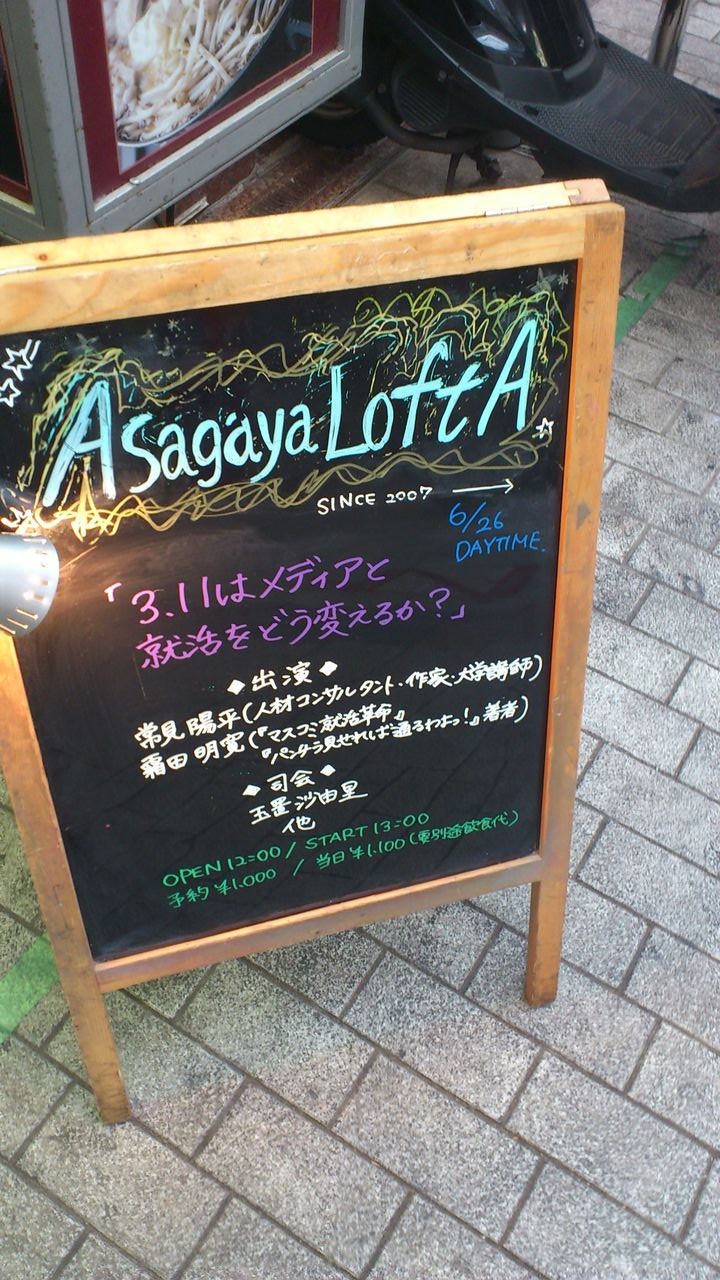 Asagaya Loft A
SINCE 2007
6/26
DAYTIME.
「3.11はメディアと
就活をどう変えるか?」
◆出演◆
常見陽平(人材コンサルタント・作家・大学講師)
霜田明寛(『マスコミ就活革命』
『パンチラ見せれば通るわよっ!』著者)
◆司会◆
玉置沙由里
他
OPEN12:00/START13:00
予約¥1,000 / 当日¥1,100(要別途飲食代)